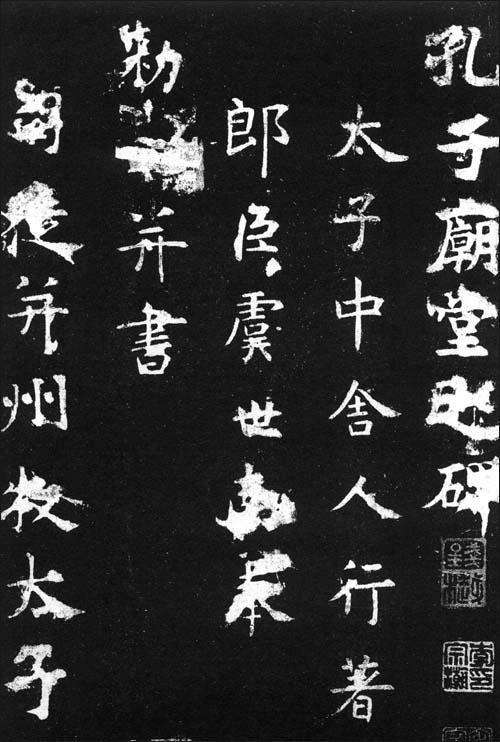 孔子廟堂之碑
太子中舍人行著
郎臣虞世南奉
勅并書
司徒并州牧太子
李宗瀚印